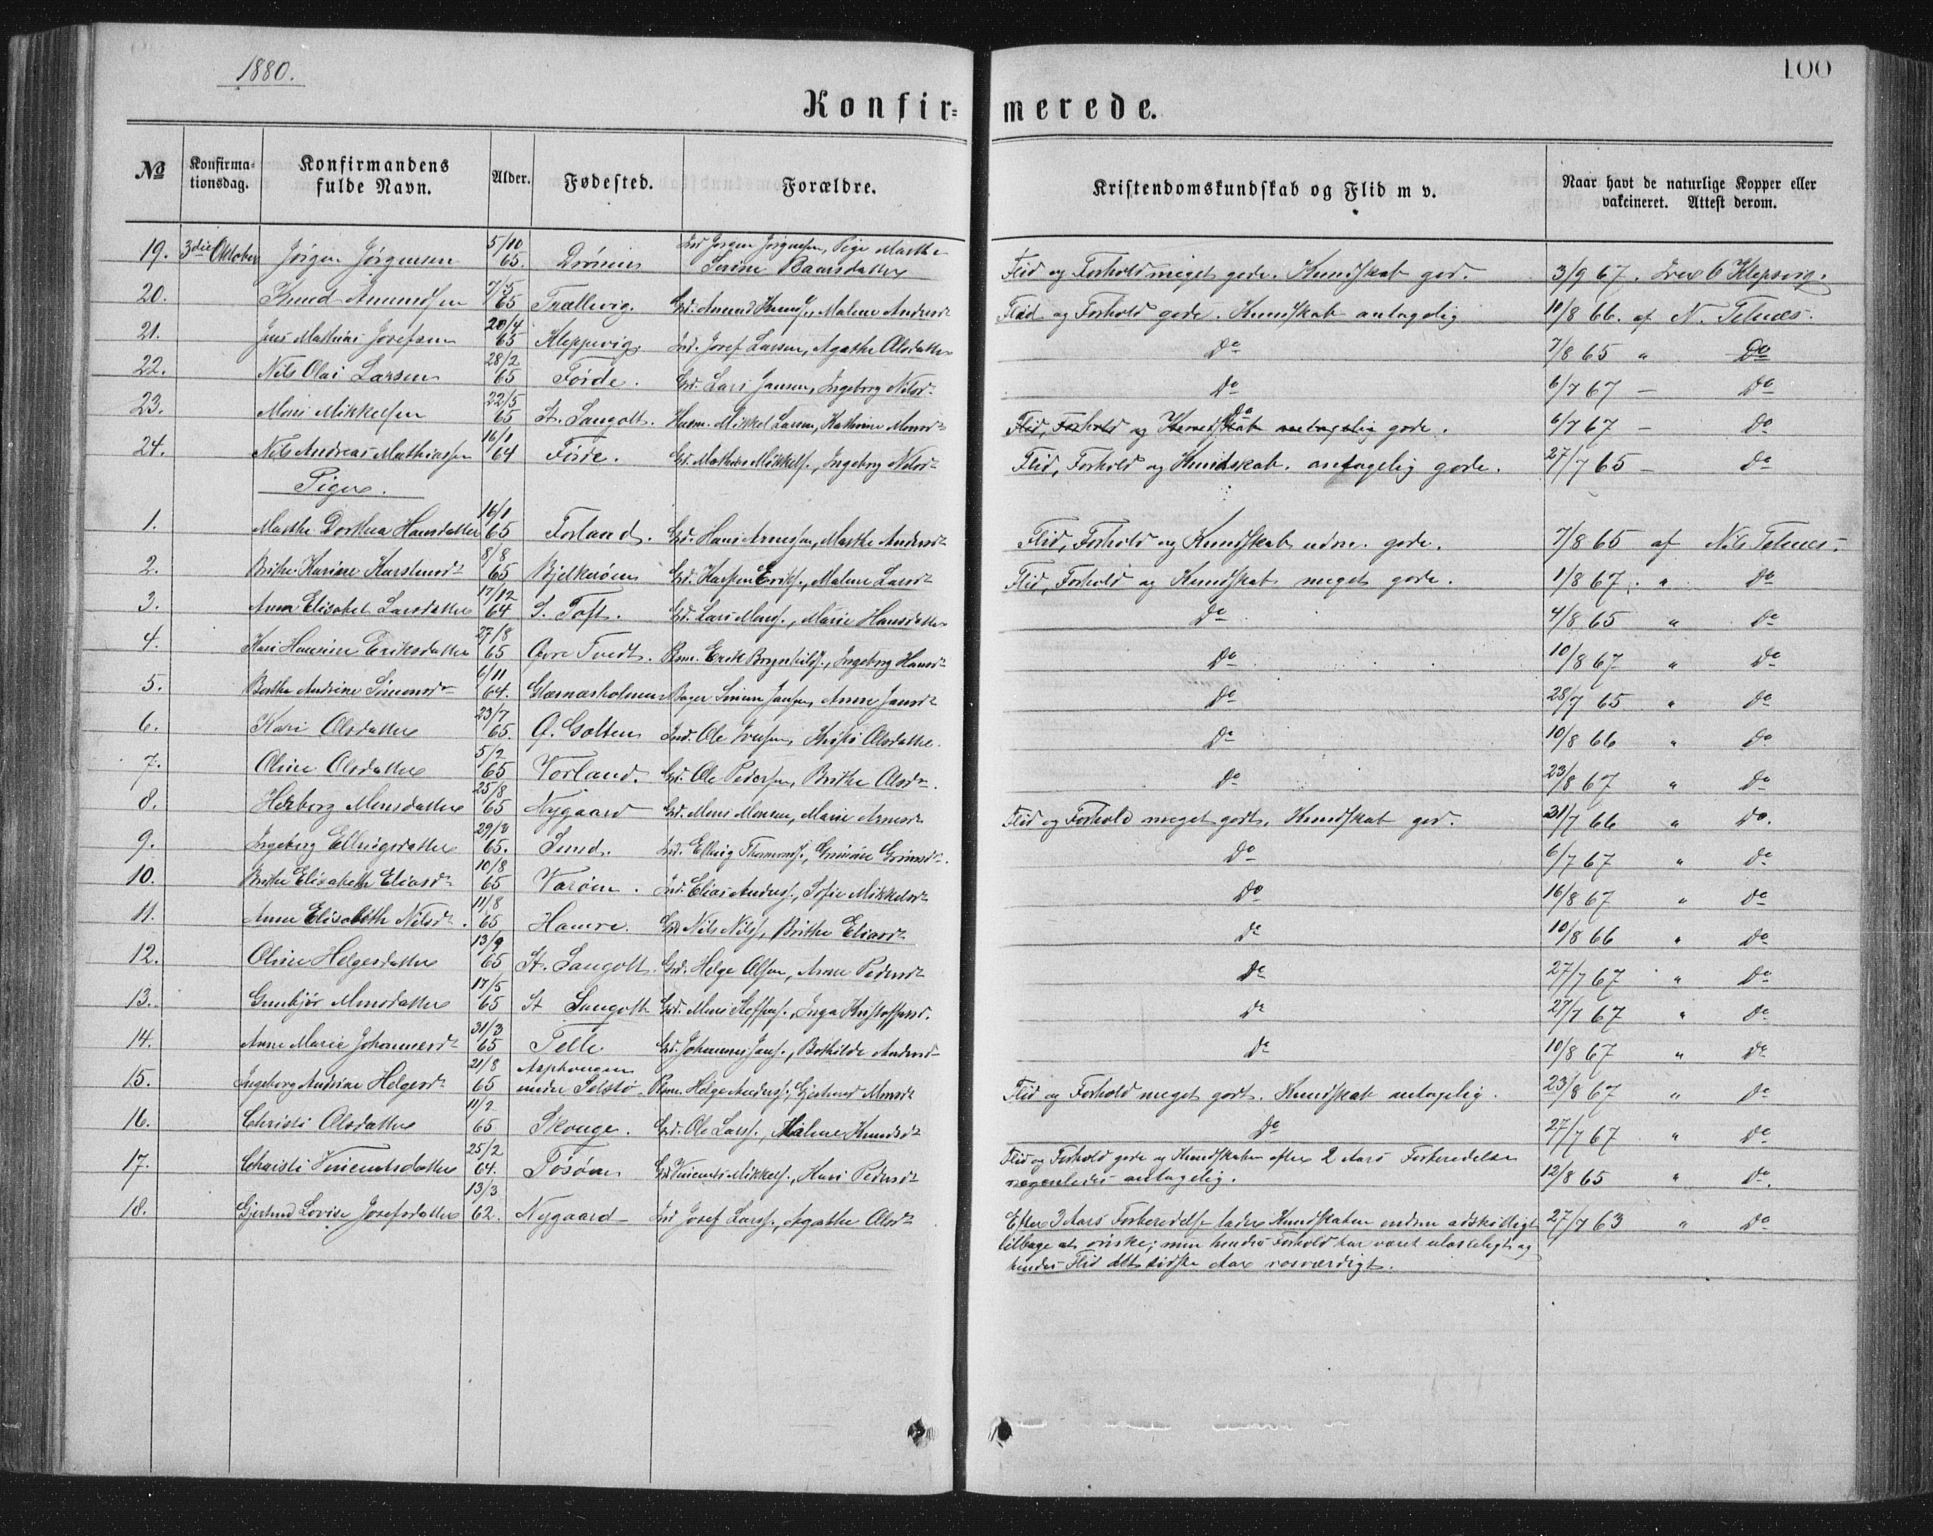 1880.
100
Konfir= merede.
No Konfirma=tionsdag. Konfirmandens fulde Navn. Alder. Fødested. Forældre. Kristendomskundskab og Flid m v. Naar havt de naturlige Kopper eller vakcineret. Attest derom.
19. 3die Oktober Jørgen Jørgensen 5/10 65. Ind Jørgen Jørgensen, Pige Marthe Serine Baarsdatter Flid og Forhold meget gode. Kundskab god. 3/9 67.
20. Knud Amundsen 7/5 65 Trællevig. Gd. Amund Knuds., Malene Andersd Flid og Forhold gode. Kundskab antagelig 10/8 66. af N. Telnæs.
21. Jens Mathias Josefsen 20/4 65 Kleppevig. Ind. Josef Larsen, Agathe Olsdatter Do 7/8 65 " Do
22. Nils Olai Larsen 28/2 65 Förde. Gd. Lars Jansen, Ingeborg Nilsd. Do 6/7 67 — Do
23. Mons Mikkelsen 22/5 65 St. Sangolt. Husm. Mikkel Larsen, Kathrine Monsd Flid, Forhold og Kundskab antagelig gode. Do 6/7 67 — Do
24. Nils Andreas Mathiassen 16/1 64 Förde. Gd. Mathias Mikkels., Ingeborg Nilsd Flid, Forhold og Kundskab antagelig gode. 27/7 65 — Do
Piger.
1. Marthe Dorthea Hansdatter 16/1 65 Forland. Gd. Hans Arnesen, Marthe Andersd Flid, Forhold og Kundskab udm. gode. 7/8 65 af Nils Telnæs.
2. Brithe Karine Karstensd 8/8 65 Bjelkarøen Gd. Karsten Eriks., Malene Larsd Flid, Forhold og Kundskab meget gode. 1/8 67. " Do
3. Anna Elisabet Larsdatter 17/12 64 S. Toft. Gd. Lars Mons., Marie Hansdatter Do 4/8 65 " Do
4. Kari Hansine Eriksdatter 27/8 65 Øvre Tvedt. Pm. Erik Brynhilds., Ingeborg Hansd Do 10/8 67 " Do
5. Berthe Andrine Simonsd 6/11 64. Glæsnæsholmen Simon Jansen, Anne Jansd Do 28/7 65 " Do
6. Kari Olsdatter 23/7 65. Ø. Golten Ind. Ole Iversen, Kristi Olsdatter. Do 10/8 66 " Do
7. Oline Olsdatter 5/2 65 Vorland. Gd. Ole Pedersen, Brithe Olsd. Do 23/8 67 " Do
8. Herborg Monsdatter 25/8 65 Nygaard Gd. Mons Monsen, Marie Arnesd Flid og Forhold meget godt. Kundskab god. 31/7 66 " Do.
9. Ingeborg Ellingsdatter 29/3 65. Lund. Ind. Elling Thormods., Gurine Grimsd. Do 6/7 67 " Do
10. Brithe Elisabeth Eliasd 10/8 65 Varøen. Ind. Elias Anders., Sofie Mikkelsd Do 16/8 67 " Do
11. Anna Elisabeth Nilsd. 11/8 65 Hamre. Gd. Nils Nils., Brithe Eliasd Do 10/8 66 " Do
12. Oline Helgesdatter 13/9 65 St. Sangolt. Gd. Helge Olsen, Anne Pedersd Do 27/7 67 " Do
13. Gunbjør Monsdatter 17/5 65 St Sangolt Gd. Mons Steffens., Inga Kristoffersd. Do 27/7 67 " Do
14. Anne Marie Johannesd 31/3 65 Telle Gd. Johannes Jans., Bothilde Andersd Do 10/8 67 " Do
15. Ingeborg Andrine Helgesd 21/8 65 Asphougen under Selstø Pm. Helge Anders., Gjertrud Monsd Flid og Forhold meget godt. Kundskab antagelig. 23/8 67 " Do
16. Christi Olsdatter 11/2 65 Skouge. Gd. Ole Lars., Malene Knudsd Do 27/7 67 " Do
17. Christi Vincentsdatter 25/2 64. Tösøen Gd. Vincents Mikkels., Kari Pedersd Flid og Forhold gode og Kundskaben efter 2 Aars Forberedelse nogenledes antagelig. 12/8 65 " Do.
18. Gjertrud Lovise Josefsdatter 13/3 62. Nygaard Ind Josef Lars., Agathe Olsd Efter 3 Aars Forberedelse lader Kundskaben endnu adskilligt tilbage at ønske; men hendes Forhold har været ulasteligt og hendes Flid det sidste Aar rosværdigt. 27/7 63 " Do